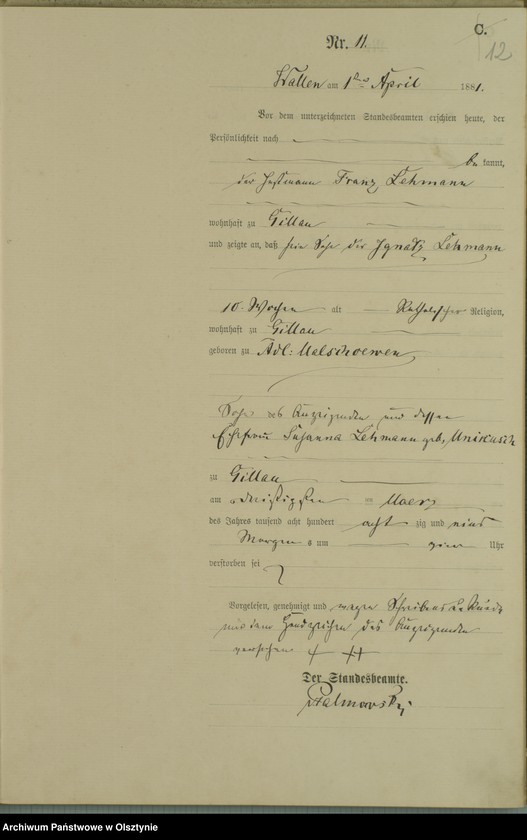 C.
12
Nr. 11.
Wallen am 1ten April 1881.
Vor dem unterzeichneten Standesbeamten erschien heute, der
Persönlichkeit nach
bekannt,
der Franz Lehmann
wohnhaft zu Gillau
und zeigte an, daß sein Sohn der Ignatz Lehmann
10 Wochen alt Katholischer Religion,
wohnhaft zu Gillau
geboren zu Adl: Malschoewen
Sohn des Anzeigenden und dessen
Ehefrau Susanna Lehmann geb.
zu Gillau
am dreißigsten Maerz
des Jahres tausend acht hundert acht zig und eins
Morgens um vier Uhr
verstorben sei
Vorgelesen, genehmigt und wegen Schreibensunkunde
mit dem Handzeichen des Anzeigenden
versehen
Der Standesbeamte.
Palmowski
Archiwum Państwowe w Olsztynie